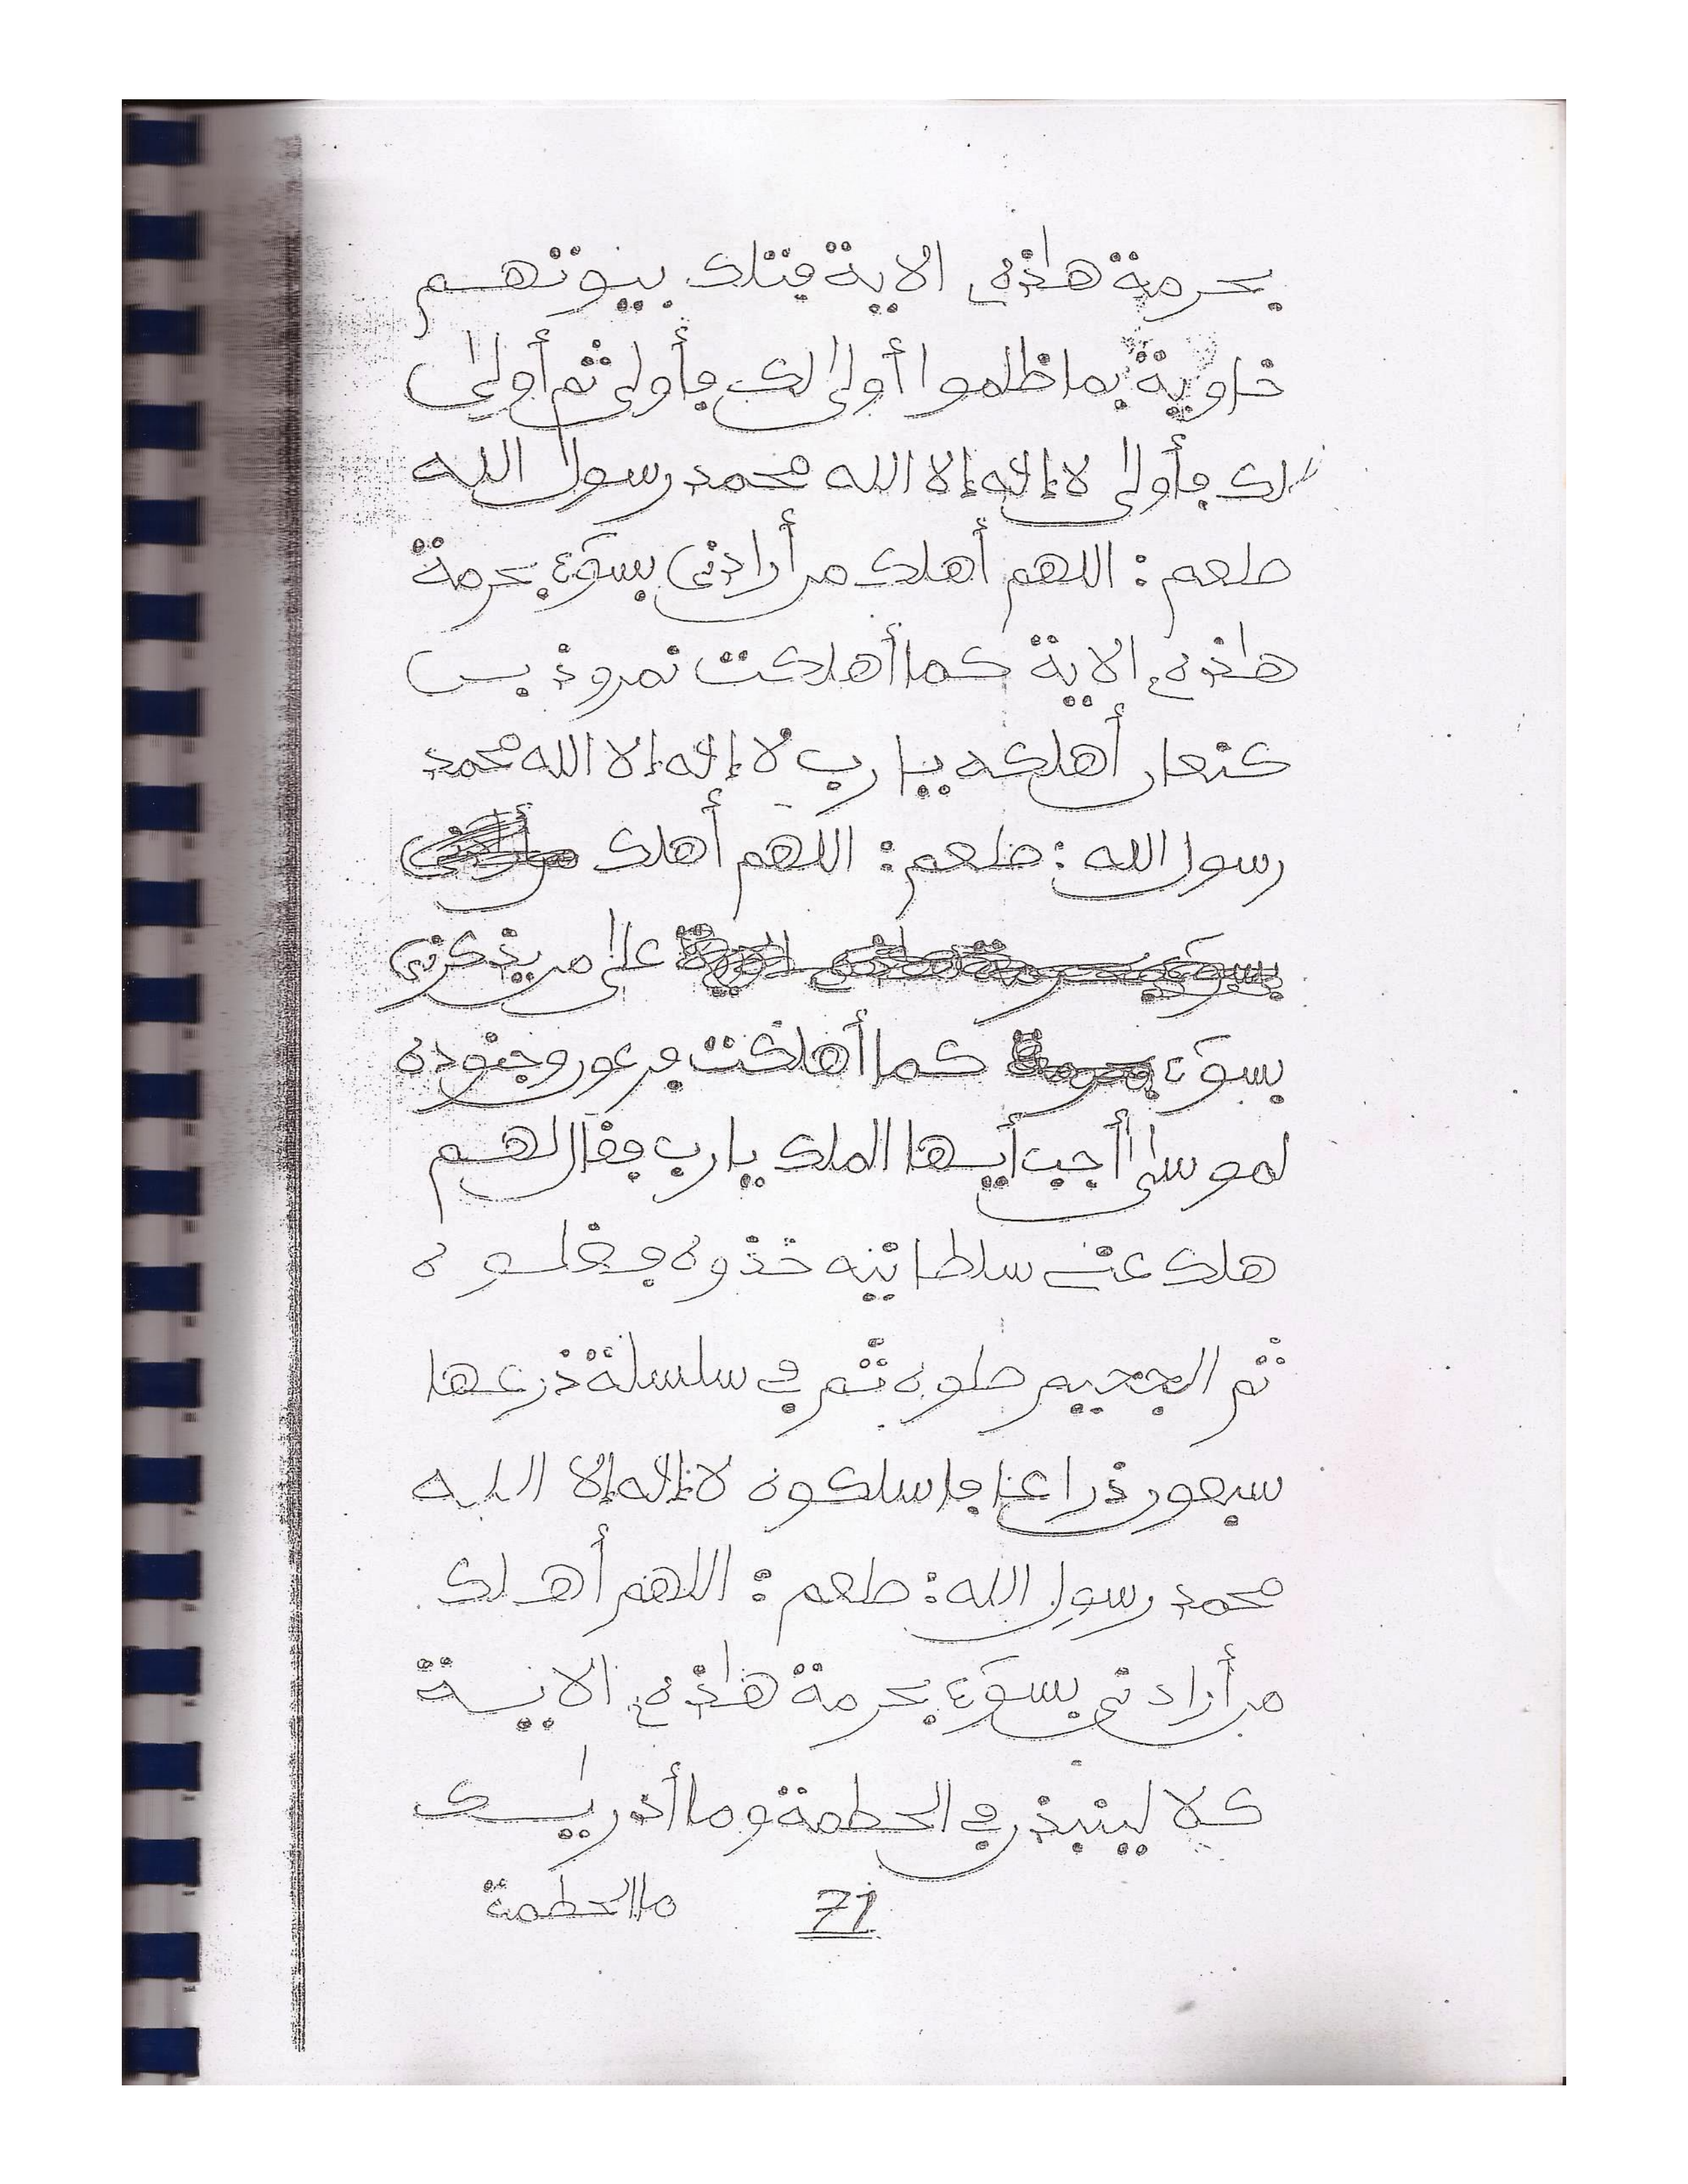 بحرمة هاذه الاية فتلك بيوتهم
خاوية بما ظلموا أولى لك فأولى ثم أولى
لك فأولى لا إله إلا الله محمد رسول الله
طعم : اللهم أهلك من أرادني بسوء بحرمة
هاذه الاية كما أهلكت نمروذ بن
كنعان أهلكه يا رب لا إله إلا الله محمد
رسول الله : طعم : اللهم أهلك
على من يذكرني
بسوء كما أهلكت فرعون وجنوده
لموسى أجب أيها الملك يا رب فقال لهم
هلك عني سلطانيه خذوه فغلوه
ثم الجحيم صلوه ثم في سلسلة ذرعها
سبعون ذراعا فاسلكوه لا إله إلا الله
محمد رسول الله : طعم : اللهم أهلك
من أرادني بسوء بحرمة هاذه الاية
كلا لينبذن في الحطمة وما أدريك
ما الحطمة
71